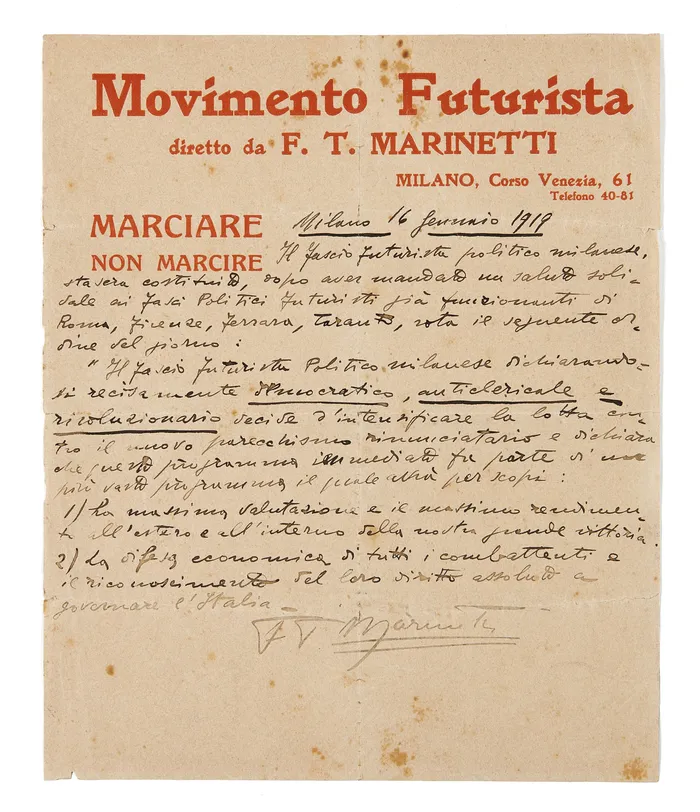 Movimento Futurista
diretto da F. T. MARINETTI
MILANO, Corso Venezia, 61
Telefono 40-81
MARCIARE
NON MARCIRE
Milano 16 Gennaio 1919
Il Fascio Futurista politico milanese,
stasera costituito, dopo aver mandato un saluto soli-
dale ai Fasci Politici Futuristi già funzionanti di
Roma, Firenze, Ferrara, Taranto, vota il seguente or-
dine del giorno :
"Il Fascio Futurista Politico milanese dichiarando-
si recisamente democratico, anticlericale e
rivoluzionario decide d'intensificare la lotta con-
tro il nuovo parecchismo rinunciatario e dichiara
che questo programma immediato fa parte di un
più vasto programma il quale avrà per scopi :
1) La massima valutazione e il massimo rendimen-
to all'estero e all'interno della nostra grande vittoria.
2) La difesa economica di tutti i combattenti e
il riconoscimento del loro diritto assoluto a
governare l'Italia -
F T Marinetti